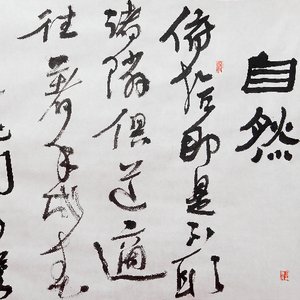 自然
俯拾即是不取
诸隣俱道適
往著手成春